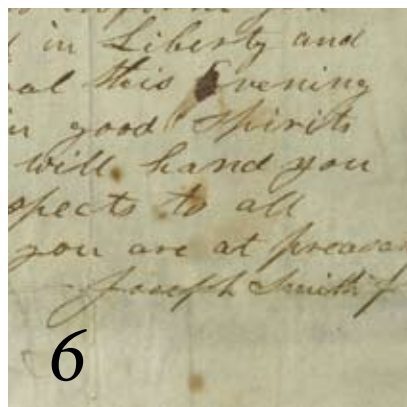 in Liberty and
this Evening
in good spirits
will hand you
spects to all
you are at preasan
Joseph Smith Jr
6